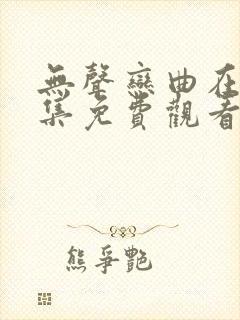 無聲戀曲在
集免費觀看
熊爭艷